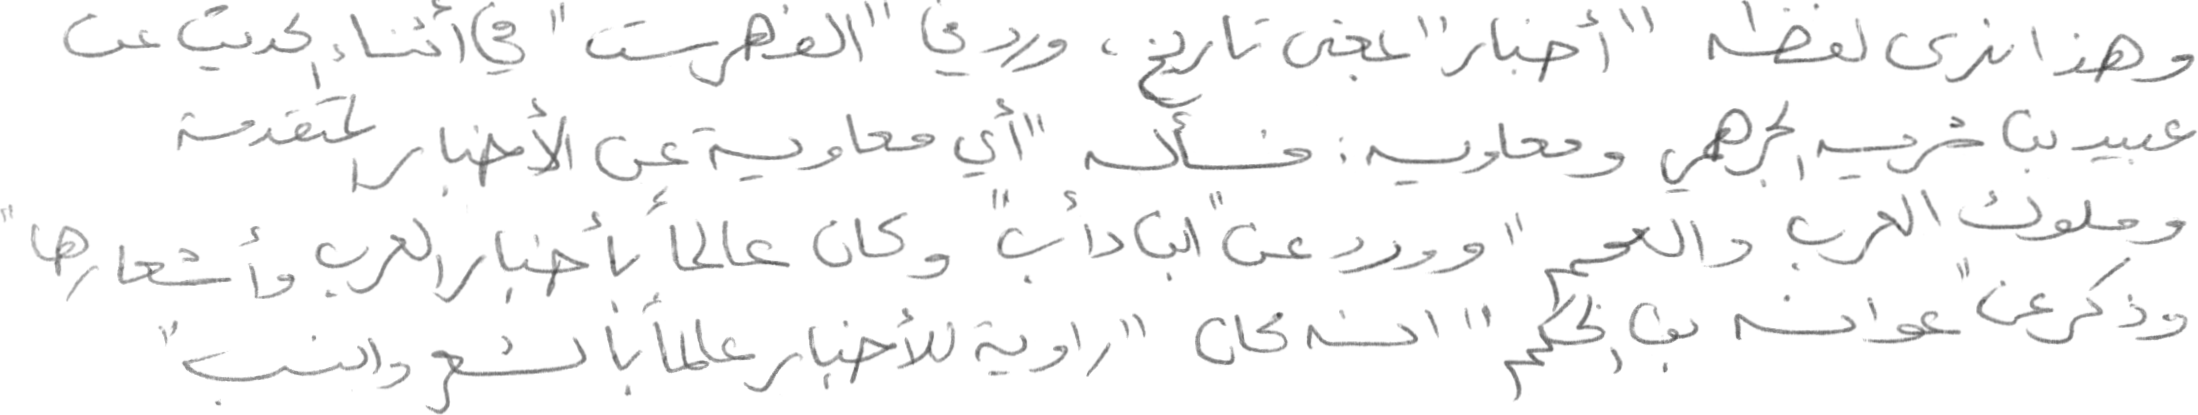 وهذا نرى لفظه "أخبار" بمعنى تاريخ، ورد في "الفهرست" في أثناء الحديث عن
عبيد بن شريه الجرهمي ومعاويه: فسأله "أي معاوية عن الأخبار المتقدمة
وملوك العرب والعجم" وورد عن "ابن دأب" وكان عالماً بأخبار العرب وأشعارها"
وذكر عن "عوانه بن الحكم" انه كان "راوية للأخبار عالماً بالشعر والنسب"